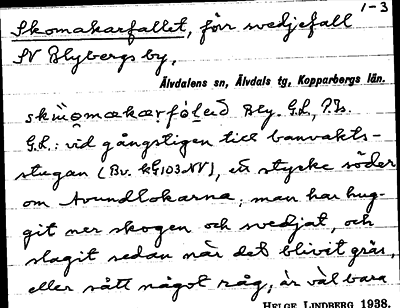 1-3
Skomakarfallet, förr svedjefall
SV Blybergs by,
Älvdalens sn, Älvdals tg, Kopparbergs län.
Bly. G.L., P.Is.
G.L.: vid gångstigen till banvakts-
stugan (Bv. kG103NV), ett stycke söder
om Avundlokarna; man har hug-
git ner skogen och svedjat, och
slagit sedan när det blivit gräs,
eller sått något råg, är väl bara
HELGE LINDBERG 1938.